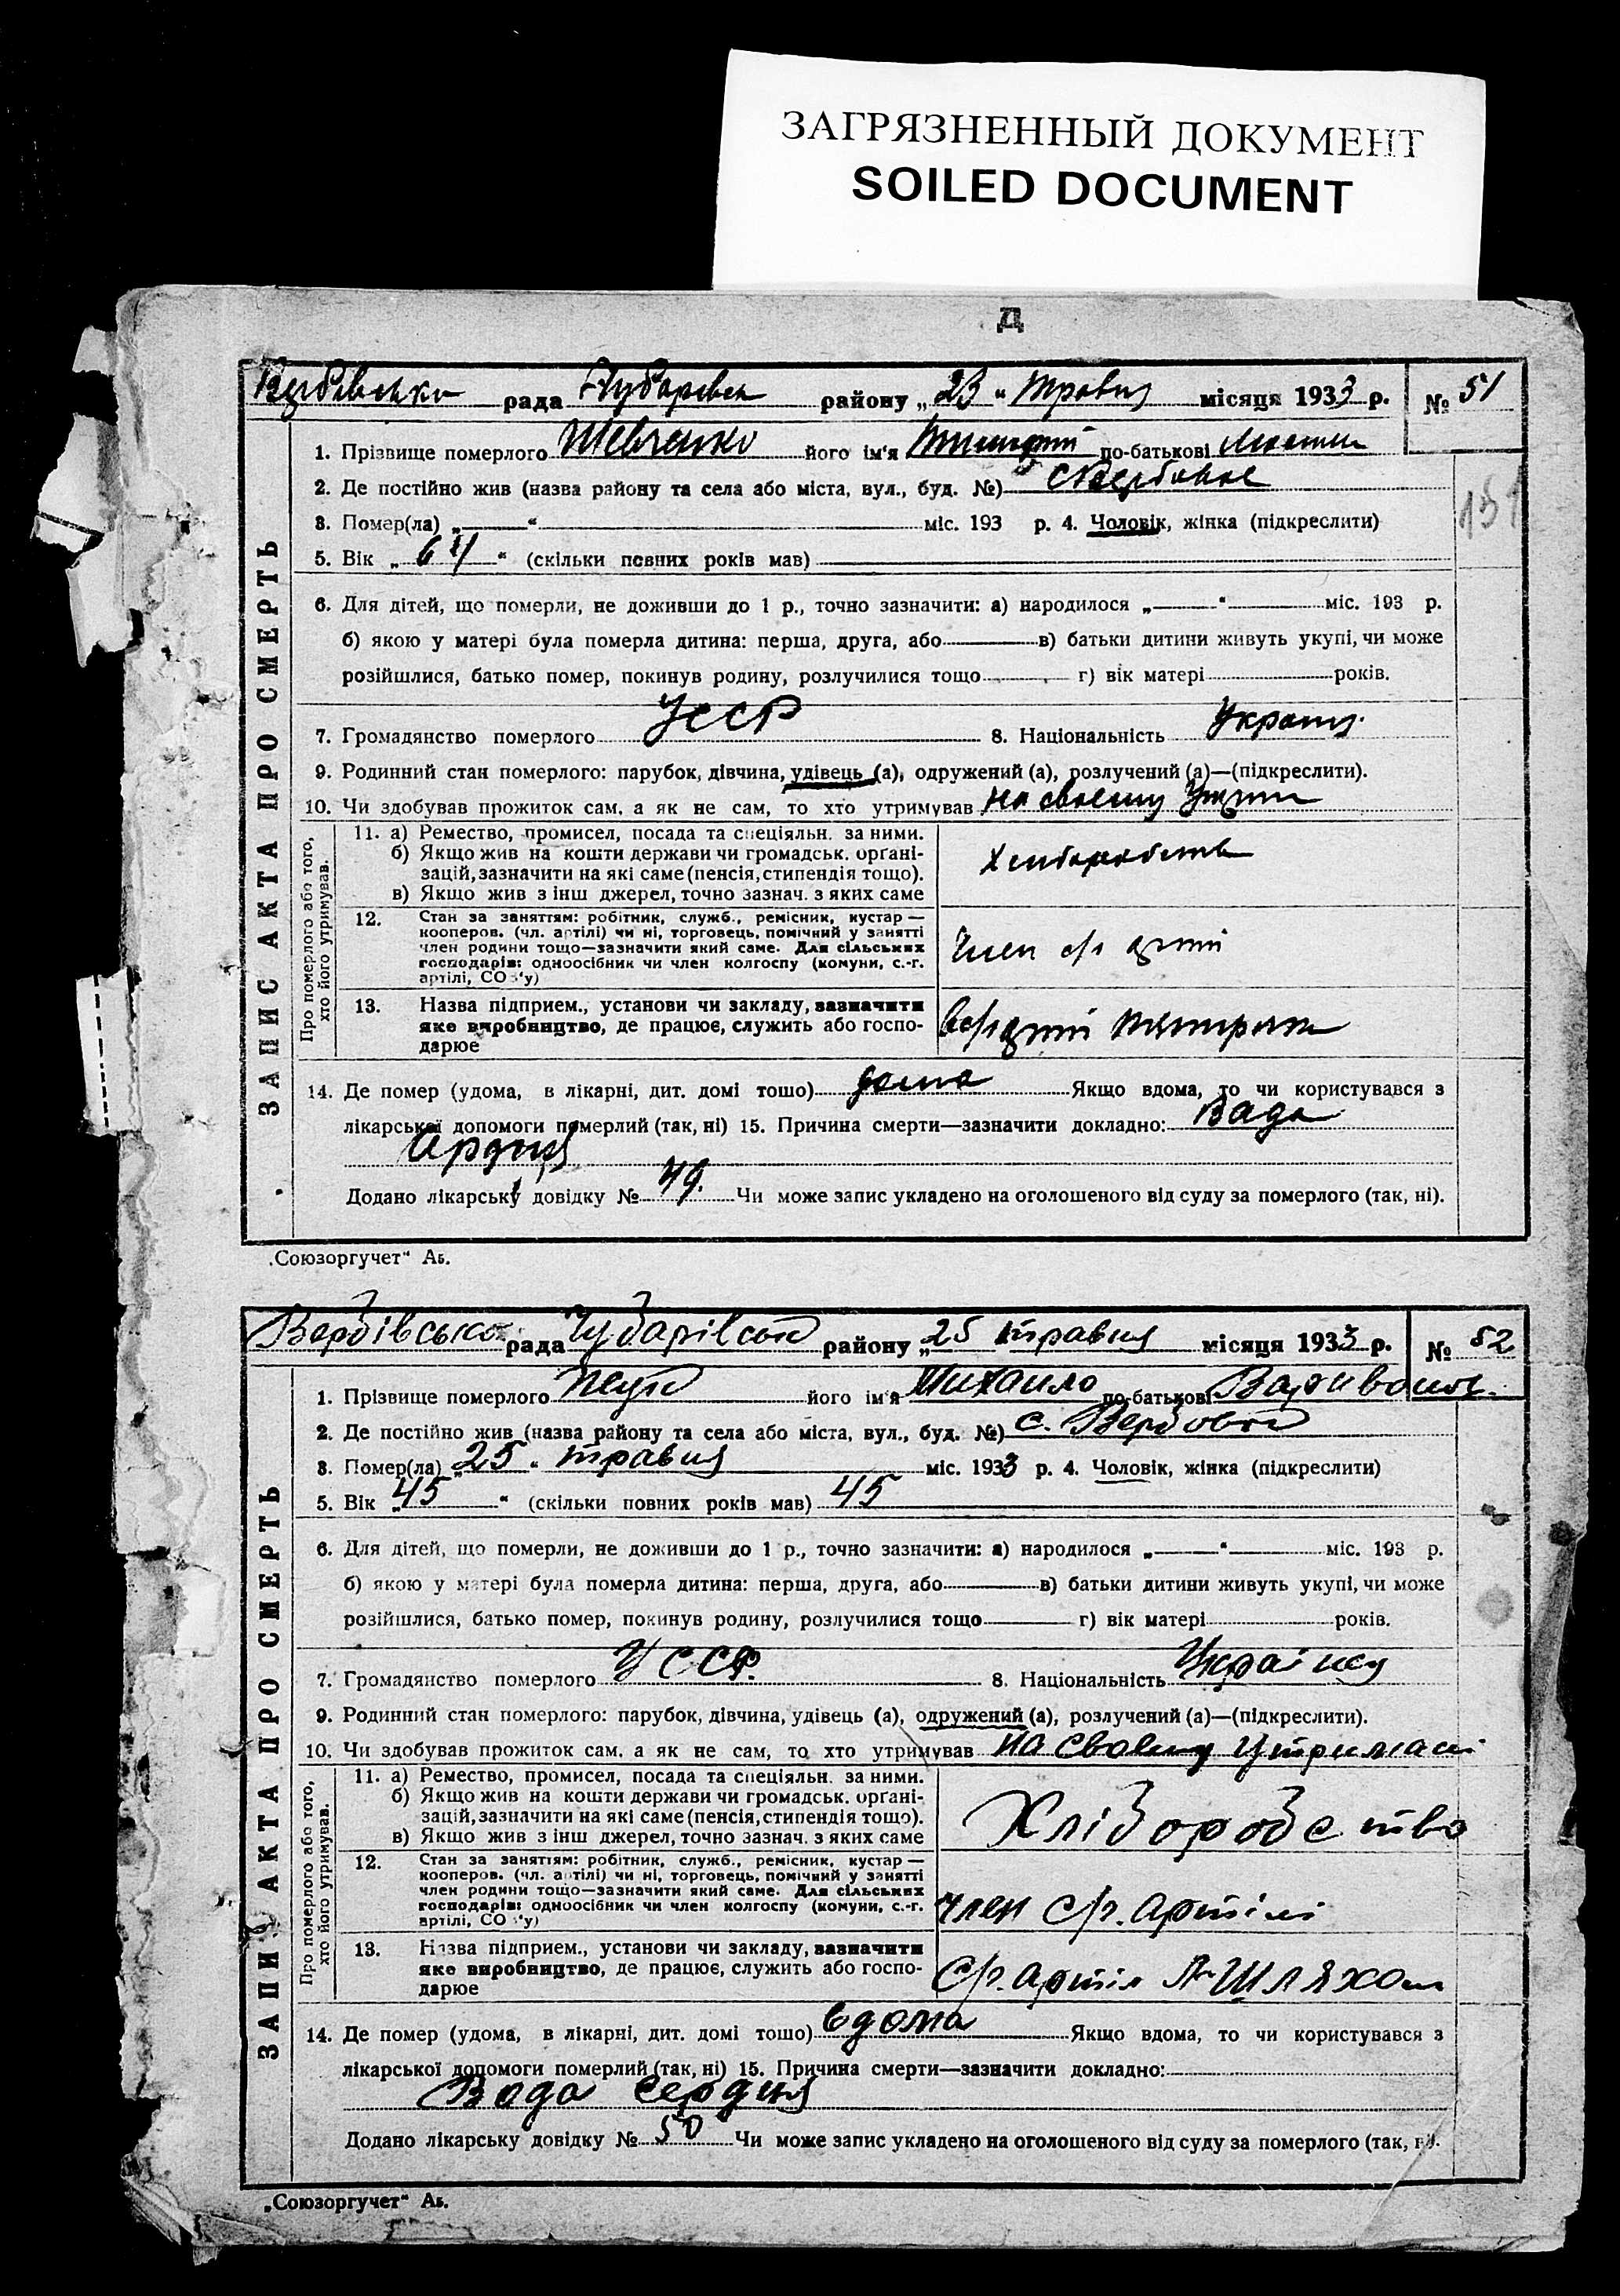 ЗАГРЯЗНЕННЫЙ ДОКУМЕНТ
SOILED DOCUMENT
Д
рада району „23" Травня місяця 1933 р. № 51
1. Прізвище померлого Шевченко його ім'я по-батькові
2. Де постійно жив (назва району та села або міста, вул., буд. №)
3. Помер(ла) „ " міс. 193 р. 4. Чоловік, жінка (підкреслити)
151
5. Вік „64" (скільки повних років мав)
6. Для дітей, що померли, не доживши до 1 р., точно зазначити: а) народилося „ " міс. 193 р.
б) якою у матері була померла дитина: перша, друга, або в) батьки дитини живуть укупі, чи може
розійшлися, батько помер, покинув родину, розлучилися тощо г) вік матері років.
7. Громадянство померлого УССР 8. Національність
9. Родинний стан померлого: парубок, дівчина, удівець (а), одружений (а), розлучений (а)—(підкреслити).
10. Чи здобував прожиток сам, а як не сам, то хто утримував на своєму
ЗАПИС АКТА ПРО СМЕРТЬ
Про померлого або того, хто його утримував.
11. а) Ремество, промисел, посада та спеціяльн. за ними.
б) Якщо жив на кошти держави чи громадськ. органі-
зацій, зазначити на які саме (пенсія, стипендія тощо).
в) Якщо жив з інш джерел, точно зазнач. з яких саме
12. Стан за заняттям: робітник, служб., ремісник, кустар —
кооперов. (чл. артілі) чи ні, торговець, помічний у занятті
член родини тощо—зазначити який саме. Для сільських
господарів: одноосібник чи член колгоспу (комуни, с.-г.
артілі, СОЗ'у)
член с/г
13. Назва підприєм., установи чи закладу, зазначити
яке виробництво, де працює, служить або госпо-
дарює
14. Де помер (удома, в лікарні, дит. домі тощо) дома Якщо вдома, то чи користувався з
лікарської допомоги померлий (так, ні) 15. Причина смерти—зазначити докладно: Вада
Додано лікарську довідку № 49. Чи може запис укладено на оголошеного від суду за померлого (так, ні).
„Союзоргучет" Аь.
Вербівська рада Чубарівського району „25 травня місяця 1933 р. № 52
1. Прізвище померлого його ім'я Михайло по-батькові
2. Де постійно жив (назва району та села або міста, вул., буд. №) с. Вербове
3. Помер(ла) „25" травня міс. 1933 р. 4. Чоловік, жінка (підкреслити)
5. Вік „45" (скільки повних років мав) 45
6. Для дітей, що померли, не доживши до 1 р., точно зазначити: а) народилося „ " міс. 193 р.
б) якою у матері була померла дитина: перша, друга, або в) батьки дитини живуть укупі, чи може
розійшлися, батько помер, покинув родину, розлучилися тощо г) вік матері років.
7. Громадянство померлого УССР. 8. Національність
9. Родинний стан померлого: парубок, дівчина, удівець (а), одружений (а), розлучений (а)—(підкреслити).
10. Чи здобував прожиток сам, а як не сам, то хто утримував на своєму утримані
ЗАПИС АКТА ПРО СМЕРТЬ
Про померлого або того, хто його утримував.
11. а) Ремество, промисел, посада та спеціяльн. за ними.
б) Якщо жив на кошти держави чи громадськ. органі-
зацій, зазначити на які саме (пенсія, стипендія тощо).
в) Якщо жив з інш джерел, точно зазнач. з яких саме
Хліборобство
12. Стан за заняттям: робітник, служб., ремісник, кустар —
кооперов. (чл. артілі) чи ні, торговець, помічний у занятті
член родини тощо—зазначити який саме. Для сільських
господарів: одноосібник чи член колгоспу (комуни, с.-г.
артілі, СОЗ'у)
член с/г. артілі
13. Назва підприєм., установи чи закладу, зазначити
яке виробництво, де працює, служить або госпо-
дарює
с/г. артіль Шляхом
14. Де помер (удома, в лікарні, дит. домі тощо) вдома Якщо вдома, то чи користувався з
лікарської допомоги померлий (так, ні) 15. Причина смерти—зазначити докладно:
Вада сердця
Додано лікарську довідку № 50 Чи може запис укладено на оголошеного від суду за померлого (так, ні).
„Союзоргучет" Аь.